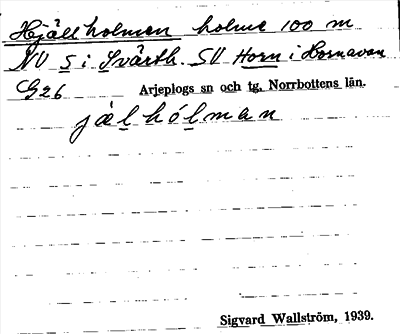 Hjällholmen holme 100 m
NV S i Svärth. SV Horn i Hornavan
G26 Arjeplogs sn och tg, Norrbottens län.
jælhólman
Sigvard Wallström, 1939.